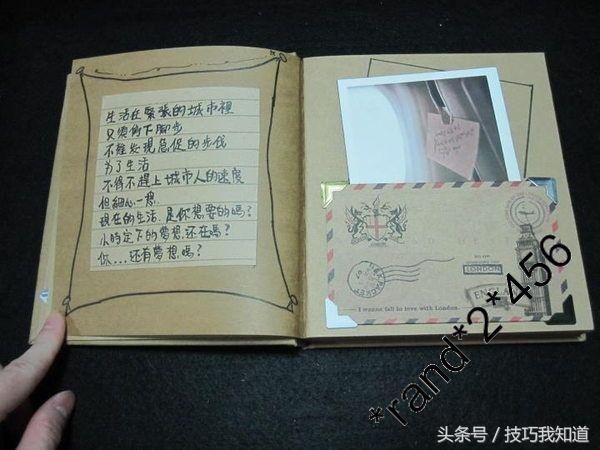 生活在緊張的城市裡
只要停下腳步
不難发現急促的步伐
為了生活
不得不趕上城市人的速度
但細心一想
現在的生活，是你想要的嗎？
小時定下的夢想，还在嗎？
你...还有夢想嗎？
LONDON
I wanna fall in love with London.
LONDON
*rand*2*456
头条号 / 技巧我知道